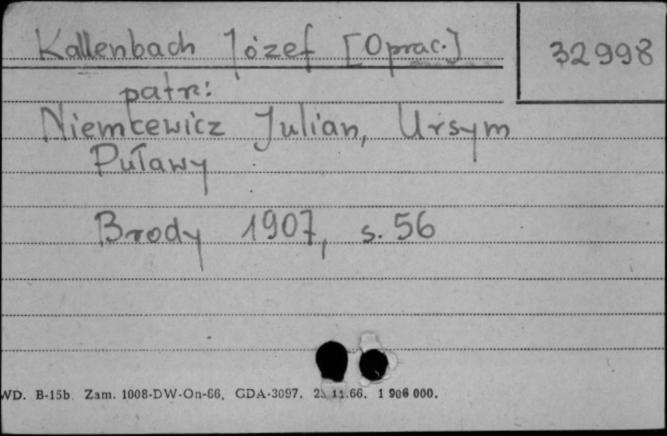 Kallenbach Józef [Oprac.]
32998
patrz:
Niemcewicz Julian, Ursyn
Puławy
Brody 1907, s. 56
WD. B-15b. Zam. 1008-DW-On-66. GDA-3097. 11.66. 1 906 000.